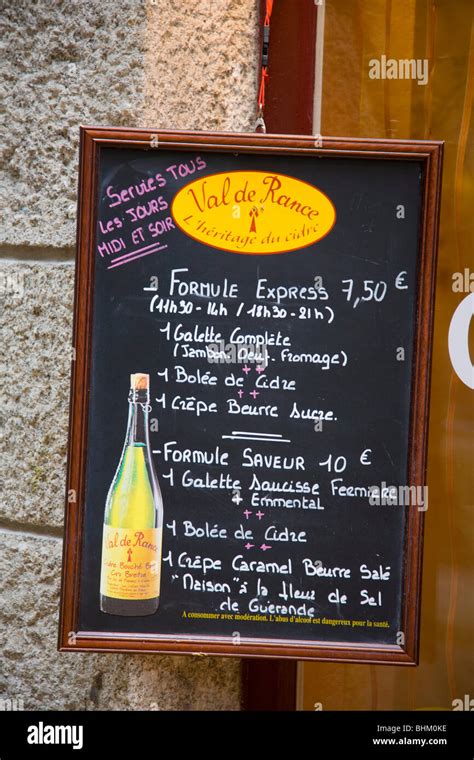 Servies TOUS
les JOURS
MIDI ET SOIR
Val de Rance
L'héritage du cidre
- Formule Express 7,50 €
(11h30-14h / 18h30-21h)
1 Galette Complète
(Jambon-Oeuf-Fromage)
++
1 Bolée de Cidre
++
1 Crêpe Beurre Sucre.
- Formule Saveur 10 €
1 Galette Saucisse Fermière
+ Emmental
++
1 Bolée de Cidre
++
1 Crêpe Caramel Beurre Salé
"Maison" à la fleur de Sel
de Guérande
Val de Rance
Cidre Bouché Breton
Cru Breton
A consommer avec modération. L'abus d'alcool est dangereux pour la santé.
a
alamy
Image ID: BHM0KE
www.alamy.com